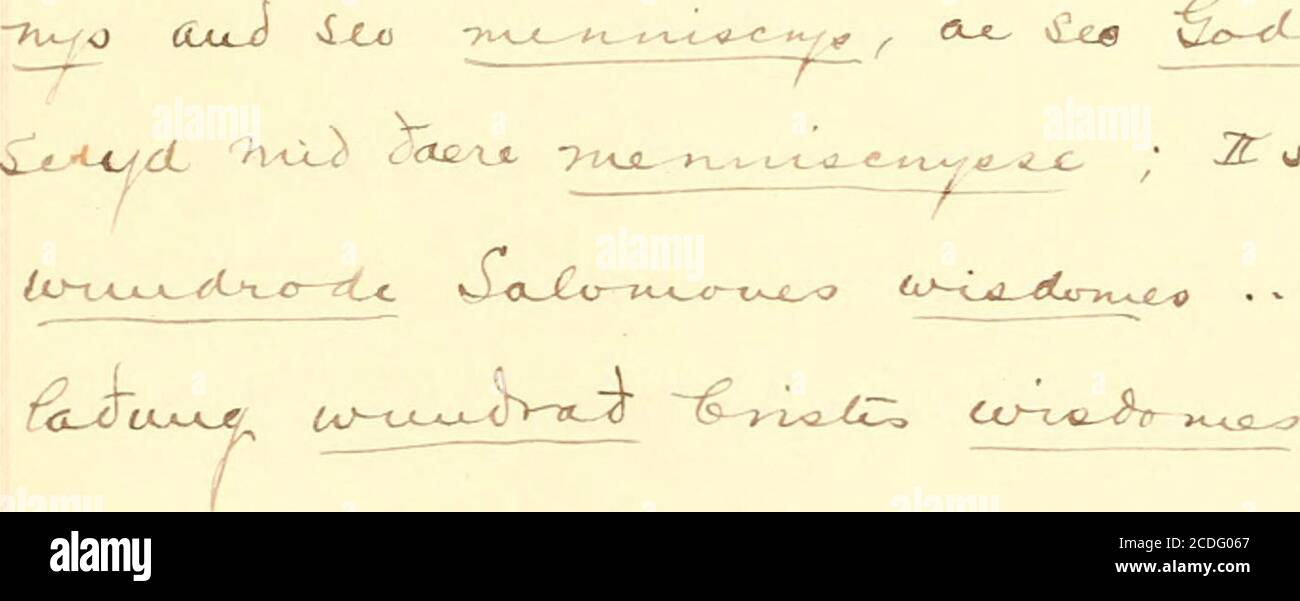 nys and seo menniscnys, ac seo God
scryd mid ðaere menniscnysse ; II s
wundrode Salomones wisdomes ..
laðung wundrað Cristes wisdomes
alamy
Image ID: 2CDG067
www.alamy.com